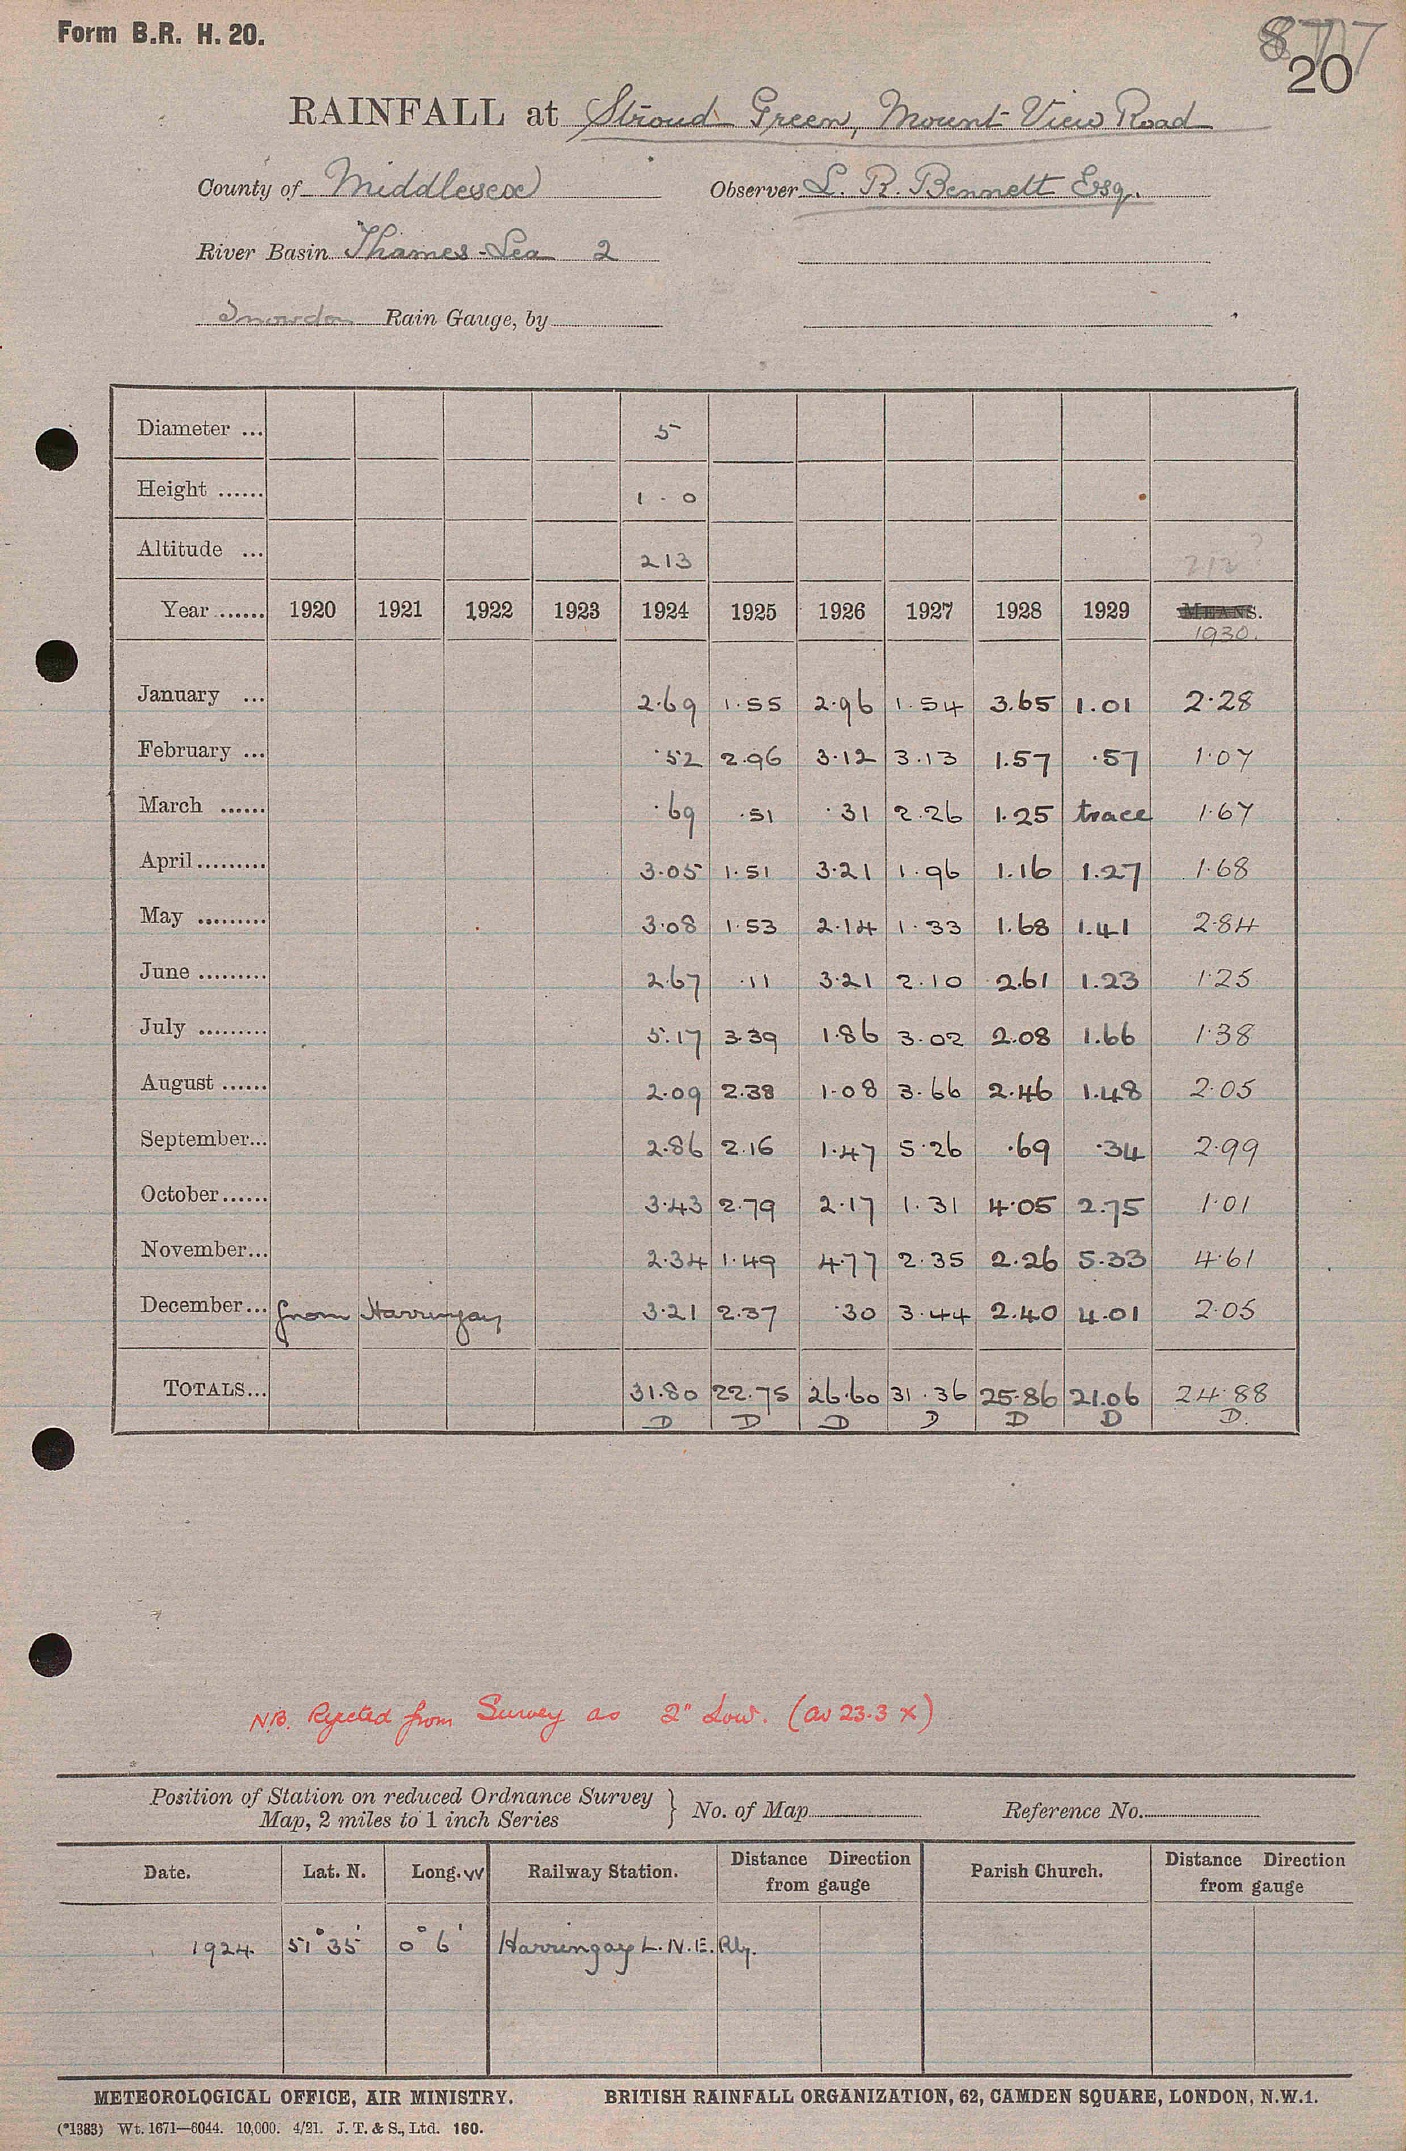 Form B.R. H. 20.
877
20
RAINFALL at Stroud Green, Mount View Road
County of Middlesex Observer L. R. Bennett Esq.
River Basin Thames-Lea 2
Snowdon Rain Gauge, by
Diameter ... 5
Height ...... 1 - 0
Altitude ... 213 212?
Year ...... 1920 1921 1922 1923 1924 1925 1926 1927 1928 1929 MEANS.
1930.
January ... 2.69 1.55 2.96 1.54 3.65 1.01 2.28
February ... .52 2.96 3.12 3.13 1.57 .57 1.07
March ...... .69 .51 .31 2.26 1.25 trace 1.67
April ......... 3.05 1.51 3.21 1.96 1.16 1.27 1.68
May ......... 3.08 1.53 2.14 1.33 1.68 1.41 2.84
June ......... 2.67 .11 3.21 2.10 2.61 1.23 1.25
July ......... 5.17 3.39 1.86 3.02 2.08 1.66 1.38
August ...... 2.09 2.38 1.08 3.66 2.46 1.48 2.05
September... 2.86 2.16 1.47 5.26 .69 .34 2.99
October ...... 3.43 2.79 2.17 1.31 4.05 2.75 1.01
November... 2.34 1.49 4.77 2.35 2.26 5.33 4.61
December ... from Harringay 3.21 2.37 .30 3.44 2.40 4.01 2.05
TOTALS... 31.80 22.75 26.60 31.36 25.86 21.06 24.88
D D D D D D D.
N.B. Rejected from Survey as 2" Low. (av 23.3 x)
Position of Station on reduced Ordnance Survey
Map, 2 miles to 1 inch Series } No. of Map Reference No.
Date. Lat. N. Long. W Railway Station. Distance Direction from gauge Parish Church. Distance Direction from gauge
1924. 51° 35' 0° 6' Harringay L.N.E. Rly.
METEOROLOGICAL OFFICE, AIR MINISTRY. BRITISH RAINFALL ORGANIZATION, 62, CAMDEN SQUARE, LONDON, N.W.1.
(*1383) Wt. 1671—6044. 10,000. 4/21. J. T. & S., Ltd. 160.